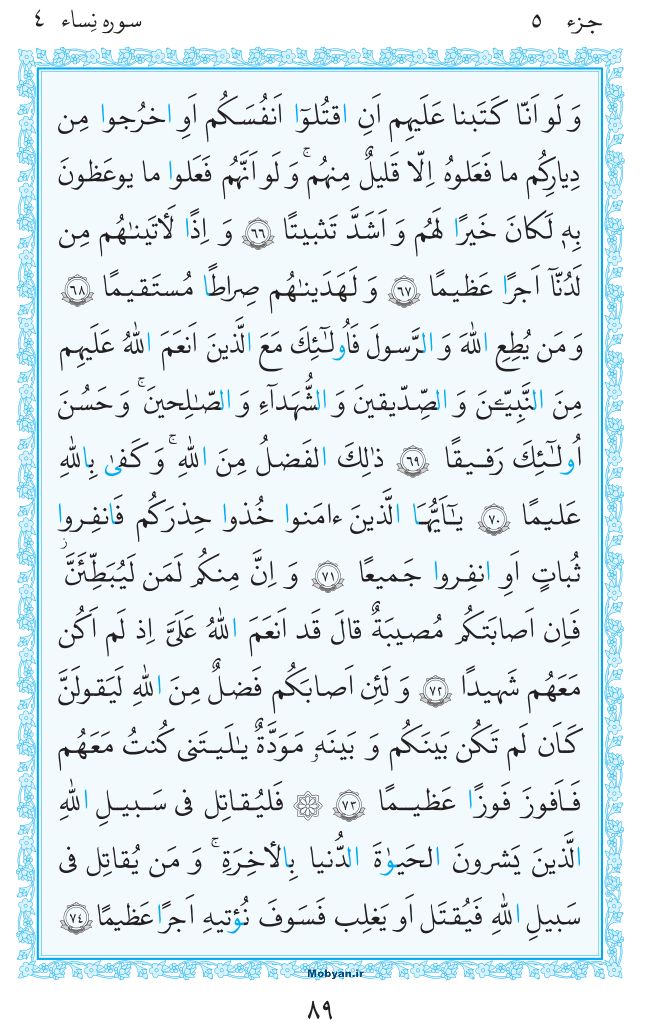 جزء ٥ سوره نِساء ٤
وَ لَو اَنّا كَتَبنا عَلَيهِم اَنِ اقتُلوٓا اَنفُسَكُم اَوِ اخرُجوا مِن
دِيارِكُم ما فَعَلوهُ اِلّا قَليلٌ مِنهُم ۚ وَ لَو اَنَّهُم فَعَلوا ما يوعَظونَ
بِهٖ لَكانَ خَيرًا لَهُم وَ اَشَدَّ تَثبيتًا ﴿٦٦﴾ وَ اِذًا لَأتَينٰهُم مِن
لَدُنّآ اَجرًا عَظيمًا ﴿٦٧﴾ وَ لَهَدَينٰهُم صِراطًا مُستَقيمًا ﴿٦٨﴾
وَ مَن يُطِعِ اللهَ وَ الرَّسولَ فَاُولٰٓئِكَ مَعَ الَّذينَ اَنعَمَ اللهُ عَلَيهِم
مِنَ النَّبِيّـٖنَ وَ الصِّدّيقينَ وَ الشُّهَدآءِ وَ الصّٰلِحينَ ۚ وَ حَسُنَ
اُولٰٓئِكَ رَفيقًا ﴿٦٩﴾ ذٰلِكَ الفَضلُ مِنَ اللهِ ۚ وَ كَفىٰ بِاللهِ
عَليمًا ﴿٧٠﴾ يٰٓاَيُّهَا الَّذينَ ءامَنوا خُذوا حِذرَكُم فَانفِروا
ثُباتٍ اَوِ انفِروا جَميعًا ﴿٧١﴾ وَ اِنَّ مِنكُم لَمَن لَيُبَطِّئَنَّ ۖ
فَاِن اَصابَتكُم مُصيبَةٌ قالَ قَد اَنعَمَ اللهُ عَلَىَّ اِذ لَم اَكُن
مَعَهُم شَهيدًا ﴿٧٢﴾ وَ لَئِن اَصابَكُم فَضلٌ مِنَ اللهِ لَيَقولَنَّ
كَاَن لَم تَكُن بَينَكُم وَ بَينَهٗ مَوَدَّةٌ يٰلَيتَنى كُنتُ مَعَهُم
فَاَفوزَ فَوزًا عَظيمًا ﴿٧٣﴾ ۞ فَليُقاتِل فى سَبيلِ اللهِ
الَّذينَ يَشرونَ الحَيوٰةَ الدُّنيا بِالأخِرَةِ ۚ وَ مَن يُقاتِل فى
سَبيلِ اللهِ فَيُقتَل اَو يَغلِب فَسَوفَ نُؤتيهِ اَجرًا عَظيمًا ﴿٧٤﴾
Mobyan.ir
٨٩